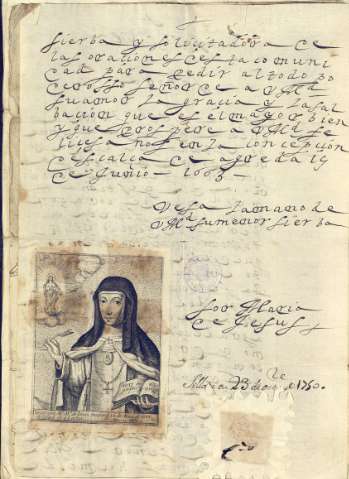 sierba y solicitadora de
las oraciones desta comuni
dad para pedir al todo po
deroso señor de a VMd
su amor la gracia y la sal
bacion que es el mayor bien
y que prospere a VMd fe
lices años en la concepcion
descalça de agreda 19
de Junio 1663
Vesa la mano de
VMd su menor sierba
sor Maria
de Jesus
23 de 1750.